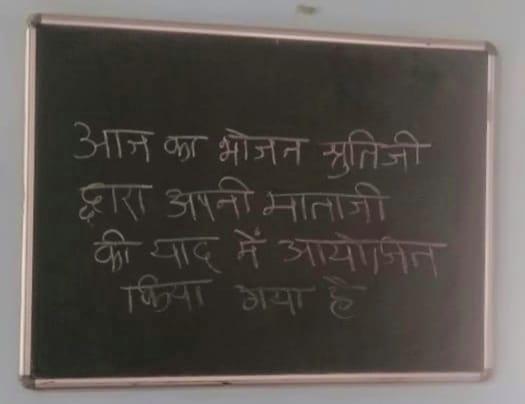 आज का भोजन श्रुतिजी
द्वारा अपनी माताजी
की याद में आयोजित
किया गया है